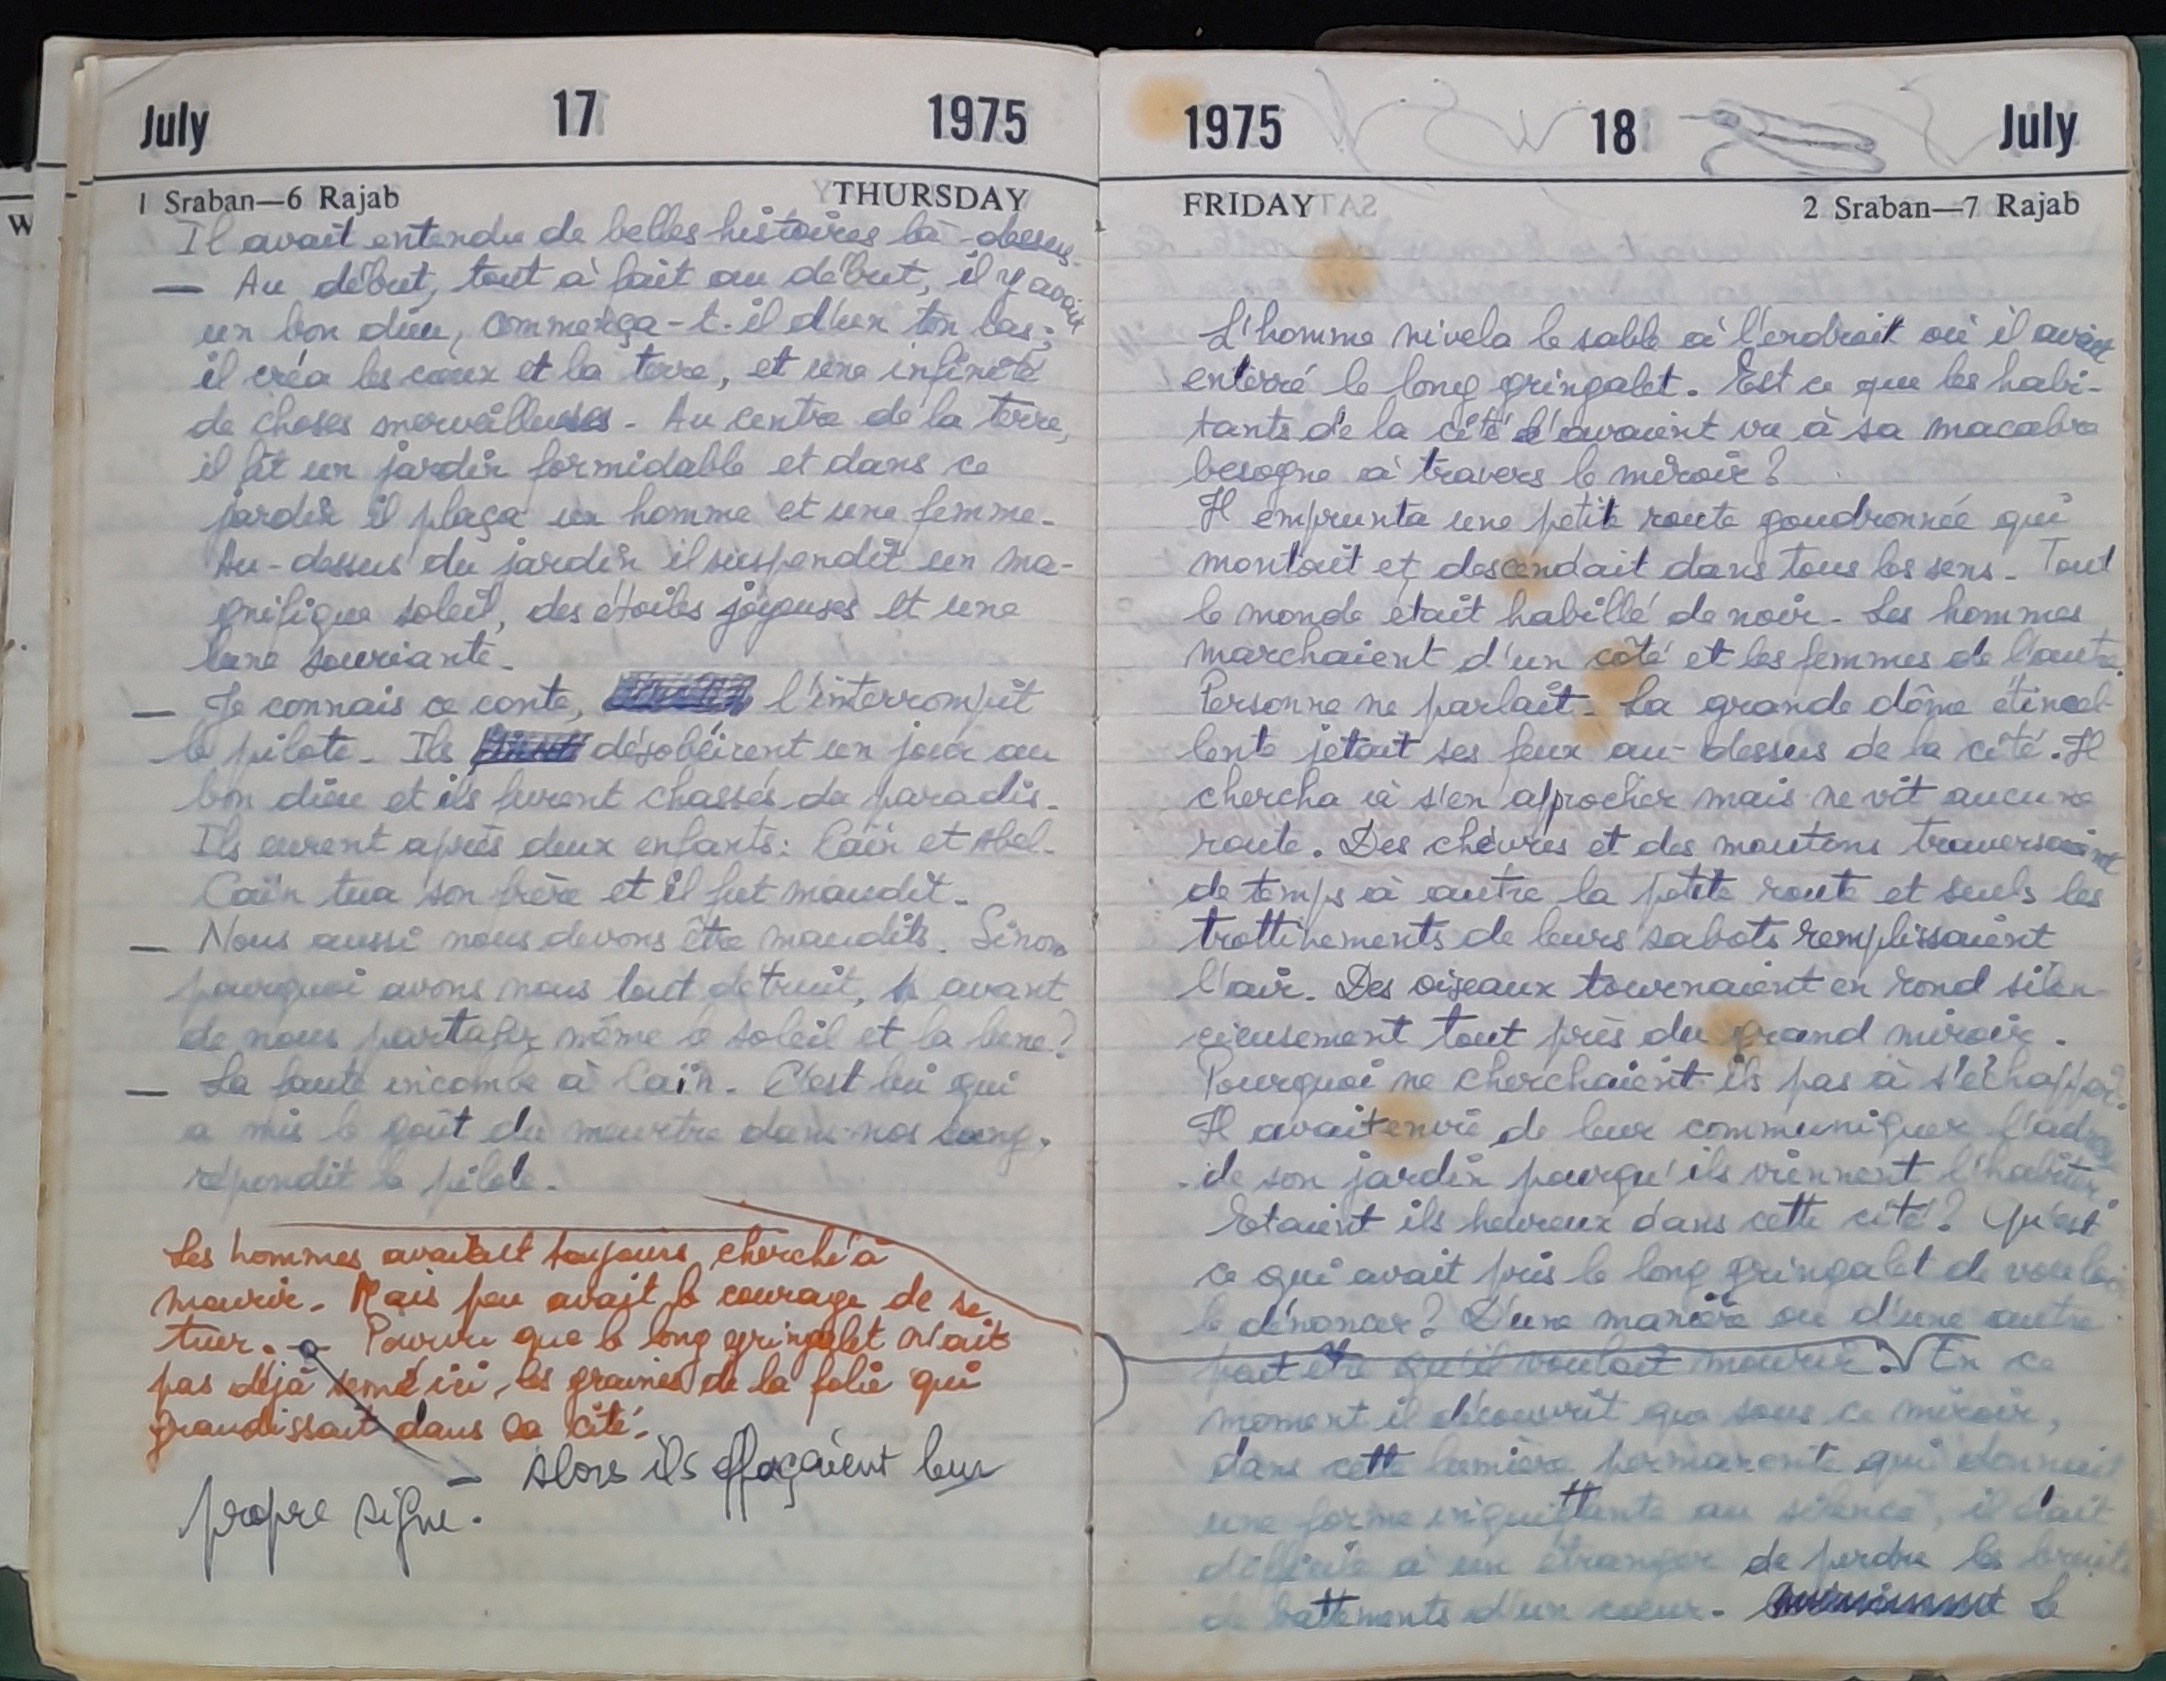 July 17 1975
1 Sraban—6 Rajab THURSDAY
Il avait entendu de belles histoires là-dessus.
— Au début, tout à fait au début, il y avait
un bon dieu, commença-t-il d'un ton bas;
il créa les cieux et la terre, et une infinité
de choses merveilleuses. Au centre de la terre,
il fit un jardin formidable et dans ce
jardin il plaça un homme et une femme.
Au-dessus du jardin il suspendit un ma-
gnifique soleil, des étoiles joyeuses et une
lune souriante.
— Je connais ce conte, l'interrompit
le pilote. Ils désobéirent un jour au
bon dieu et ils furent chassés de paradis.
Ils eurent après deux enfants: Caïn et Abel.
Caïn tua son frère et il fut maudit.
— Nous aussi nous devons être maudits. Sinon
pourquoi avons nous tout détruit, avant
de nous partager même le soleil et la lune?
— La faute incombe à Caïn. C'est lui qui
a mis le goût du meurtre dans nos sang,
répondit le pilote.
Les hommes avaient toujours cherché à
mourir. Mais peu avait le courage de se
tuer. Pourvu que le long gringalet n'ait
pas déjà semé ici, les graines de la folie qui
grandissait dans sa cité.
— Alors ils effaçaient leur
propre signe.
1975 18 July
FRIDAY 2 Sraban—7 Rajab
L'homme nivela le sable à l'endroit où il avait
enterré le long gringalet. Est ce que les habi-
tants de la cité l'avaient vu à sa macabre
besogne à travers le miroir?
Il emprunta une petite route goudronnée qui
montait et descendait dans tous les sens. Tout
le monde était habillé de noir. Les hommes
marchaient d'un côté et les femmes de l'autre.
Personne ne parlait. La grande dôme étincel-
lente jetait ses feux au-dessus de la cité. Il
chercha à s'en approcher mais ne vit aucune
route. Des chèvres et des moutons traversaient
de temps à autre la petite route et seuls les
trottinements de leurs sabots remplissaient
l'air. Des oiseaux tournaient en rond silen-
cieusement tout près du grand miroir.
Pourquoi ne cherchaient ils pas à s'échapper?
Il avait envie de leur communiquer
de son jardin pourqu'ils viennent l'habiter.
Etaient ils heureux dans cette cité? Qu'est
ce qui avait pris le long gringalet de vouloir
le dénoncer? D'une manière ou d'une autre
peut être qu'il voulait mourir. En ce
moment il découvrit que sous ce miroir,
dans cette lumière permanente qui donnait
une forme inquiettante au silence, il était
difficile à un étranger de perdre les bruits
de battements d'un cœur. Le